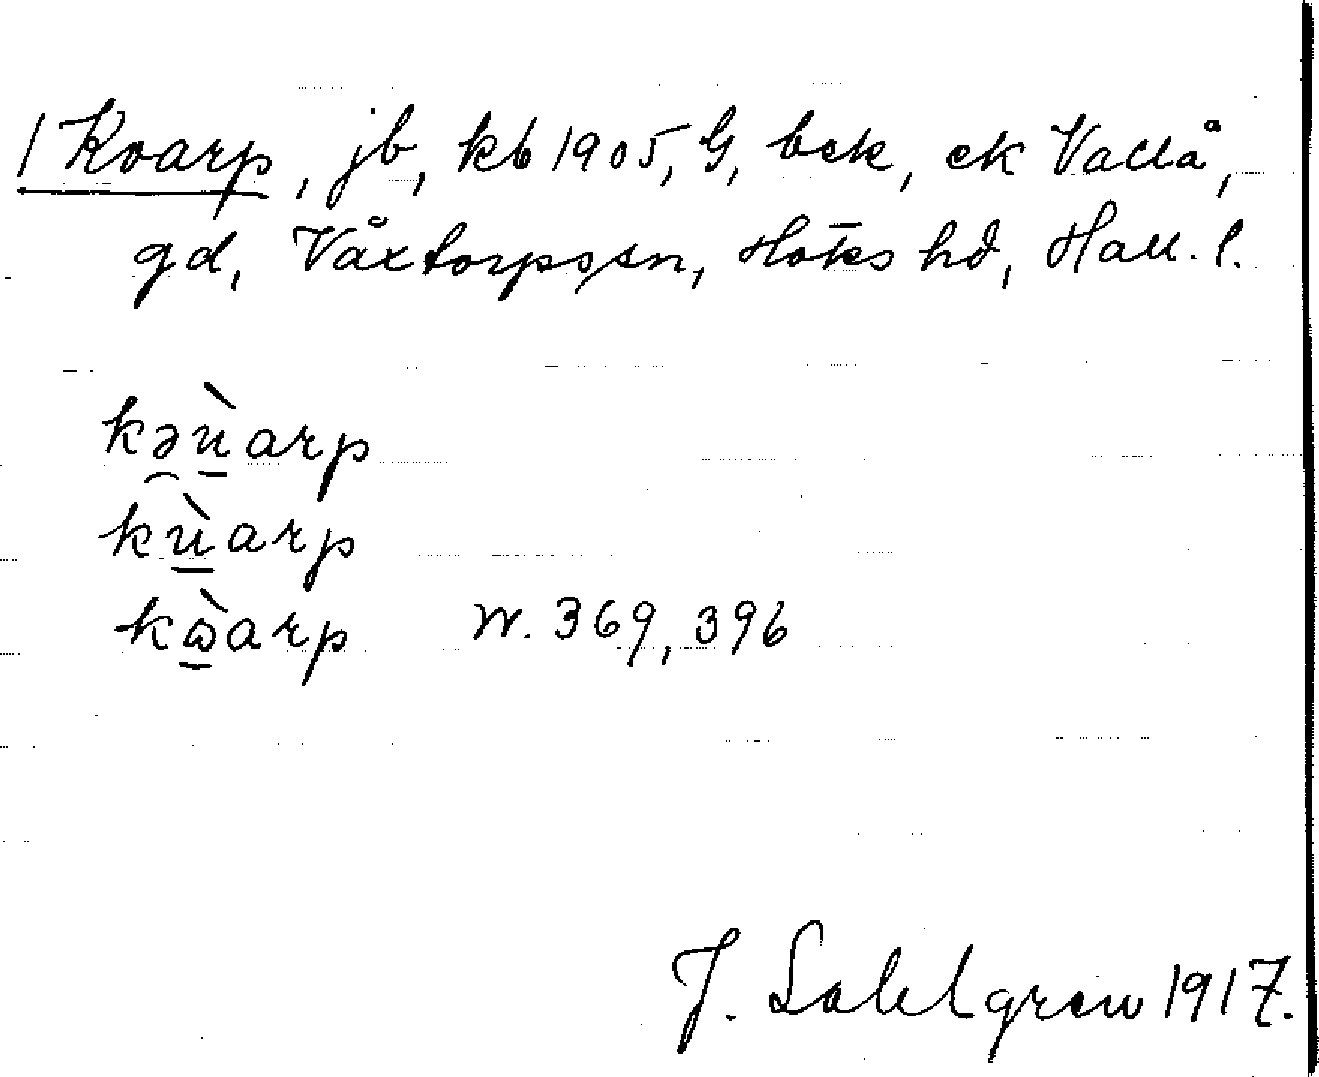 1 Kvarp, jb, kb 1905, G, bek, ek Vallå,
gd, Våxtorps sn, Höks hd, Hall. l.
kəùarp
kùarp
kὼarp W. 369, 396
J. Sahlgren 1917.